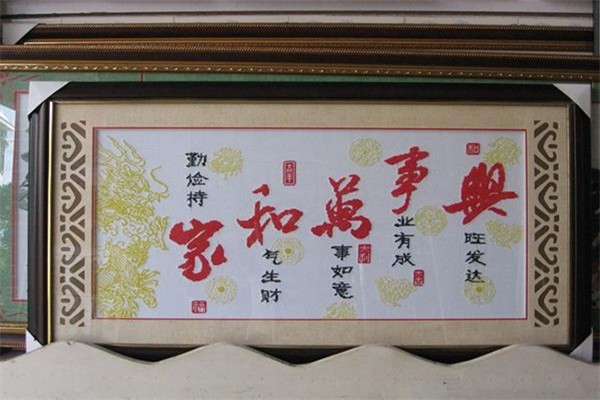 勤俭持家
和气生财
萬事如意
事业有成
興旺发达
福